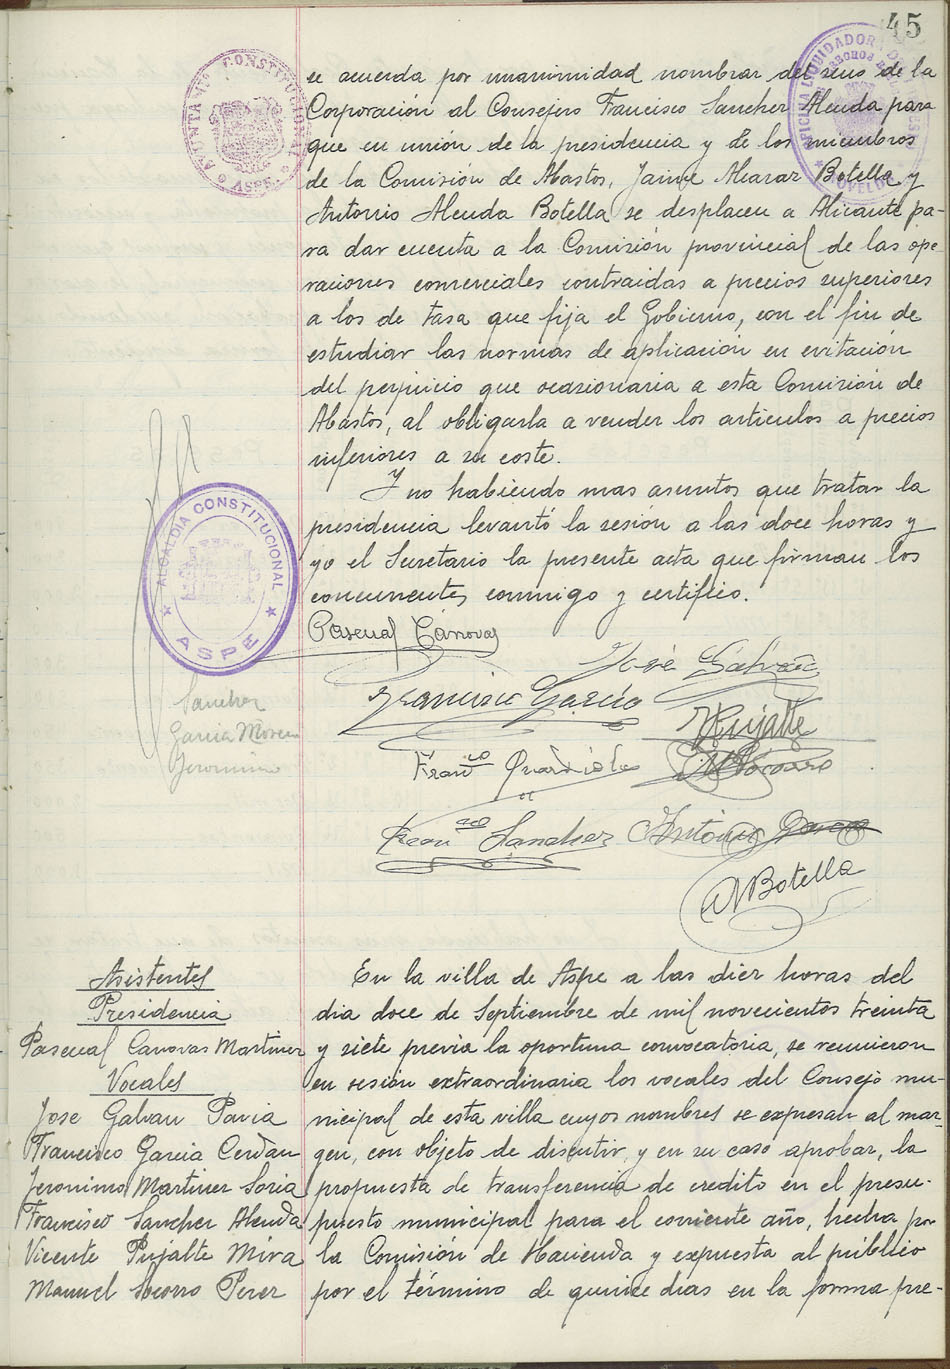 45
se acuerda por unanimidad nombrar del seno de la
Corporación al Consejero Francisco Sanchez Alenda para
que en unión de la presidencia y de los miembros
de la Comisión de Abastos, Jaime Alcaraz Botella y
Antonio Alenda Botella se desplacen a Alicante pa-
ra dar cuenta a la Comisión provincial de las ope-
raciones comerciales contraidas a precios superiores
a los de tasa que fija el Gobierno, con el fin de
estudiar las normas de aplicación en evitación
del perjuicio que ocasionaria a esta Comisión de
Abastos, al obligarla a vender los articulos a precios
inferiores a su coste.
Y no habiendo mas asuntos que tratar la
presidencia levantó la sesión a las doce horas y
yo el Secretario la presente acta que firman los
concurrentes conmigo y certifico.
AYUNTA Mto. CONSTITUCIONAL
ASPE
OFICINA LIQUIDADORA
NOVELDA
ALCALDIA CONSTITUCIONAL
ASPE
Pascual Cánovas
José Galvañ
Francisco García
VPujalte
Sanchez
Garcia Moreno
Jeronimo
Franco
MSocorro
Franco Sanchez
Antonio
ABotella
Asistentes
Presidencia
Pascual Canovas Martinez
Vocales
Jose Galvan Pavia
Francisco Garcia Cerdán
Jeronimo Martinez Soria
Francisco Sanchez Alenda
Vicente Pujalte Mira
Manuel Socorro Perez
En la villa de Aspe a las diez horas del
dia doce de Septiembre de mil novecientos treinta
y siete previa la oportuna convocatoria, se reunieron
en sesión extraordinaria los vocales del Consejo mu-
nicipal de esta villa cuyos nombres se expresan al mar-
gen, con objeto de discutir, y en su caso aprobar, la
propuesta de transferencia de credito en el presu-
puesto municipal para el corriente año, hecha por
la Comisión de Hacienda y expuesta al público
por el término de quince dias en la forma pre-